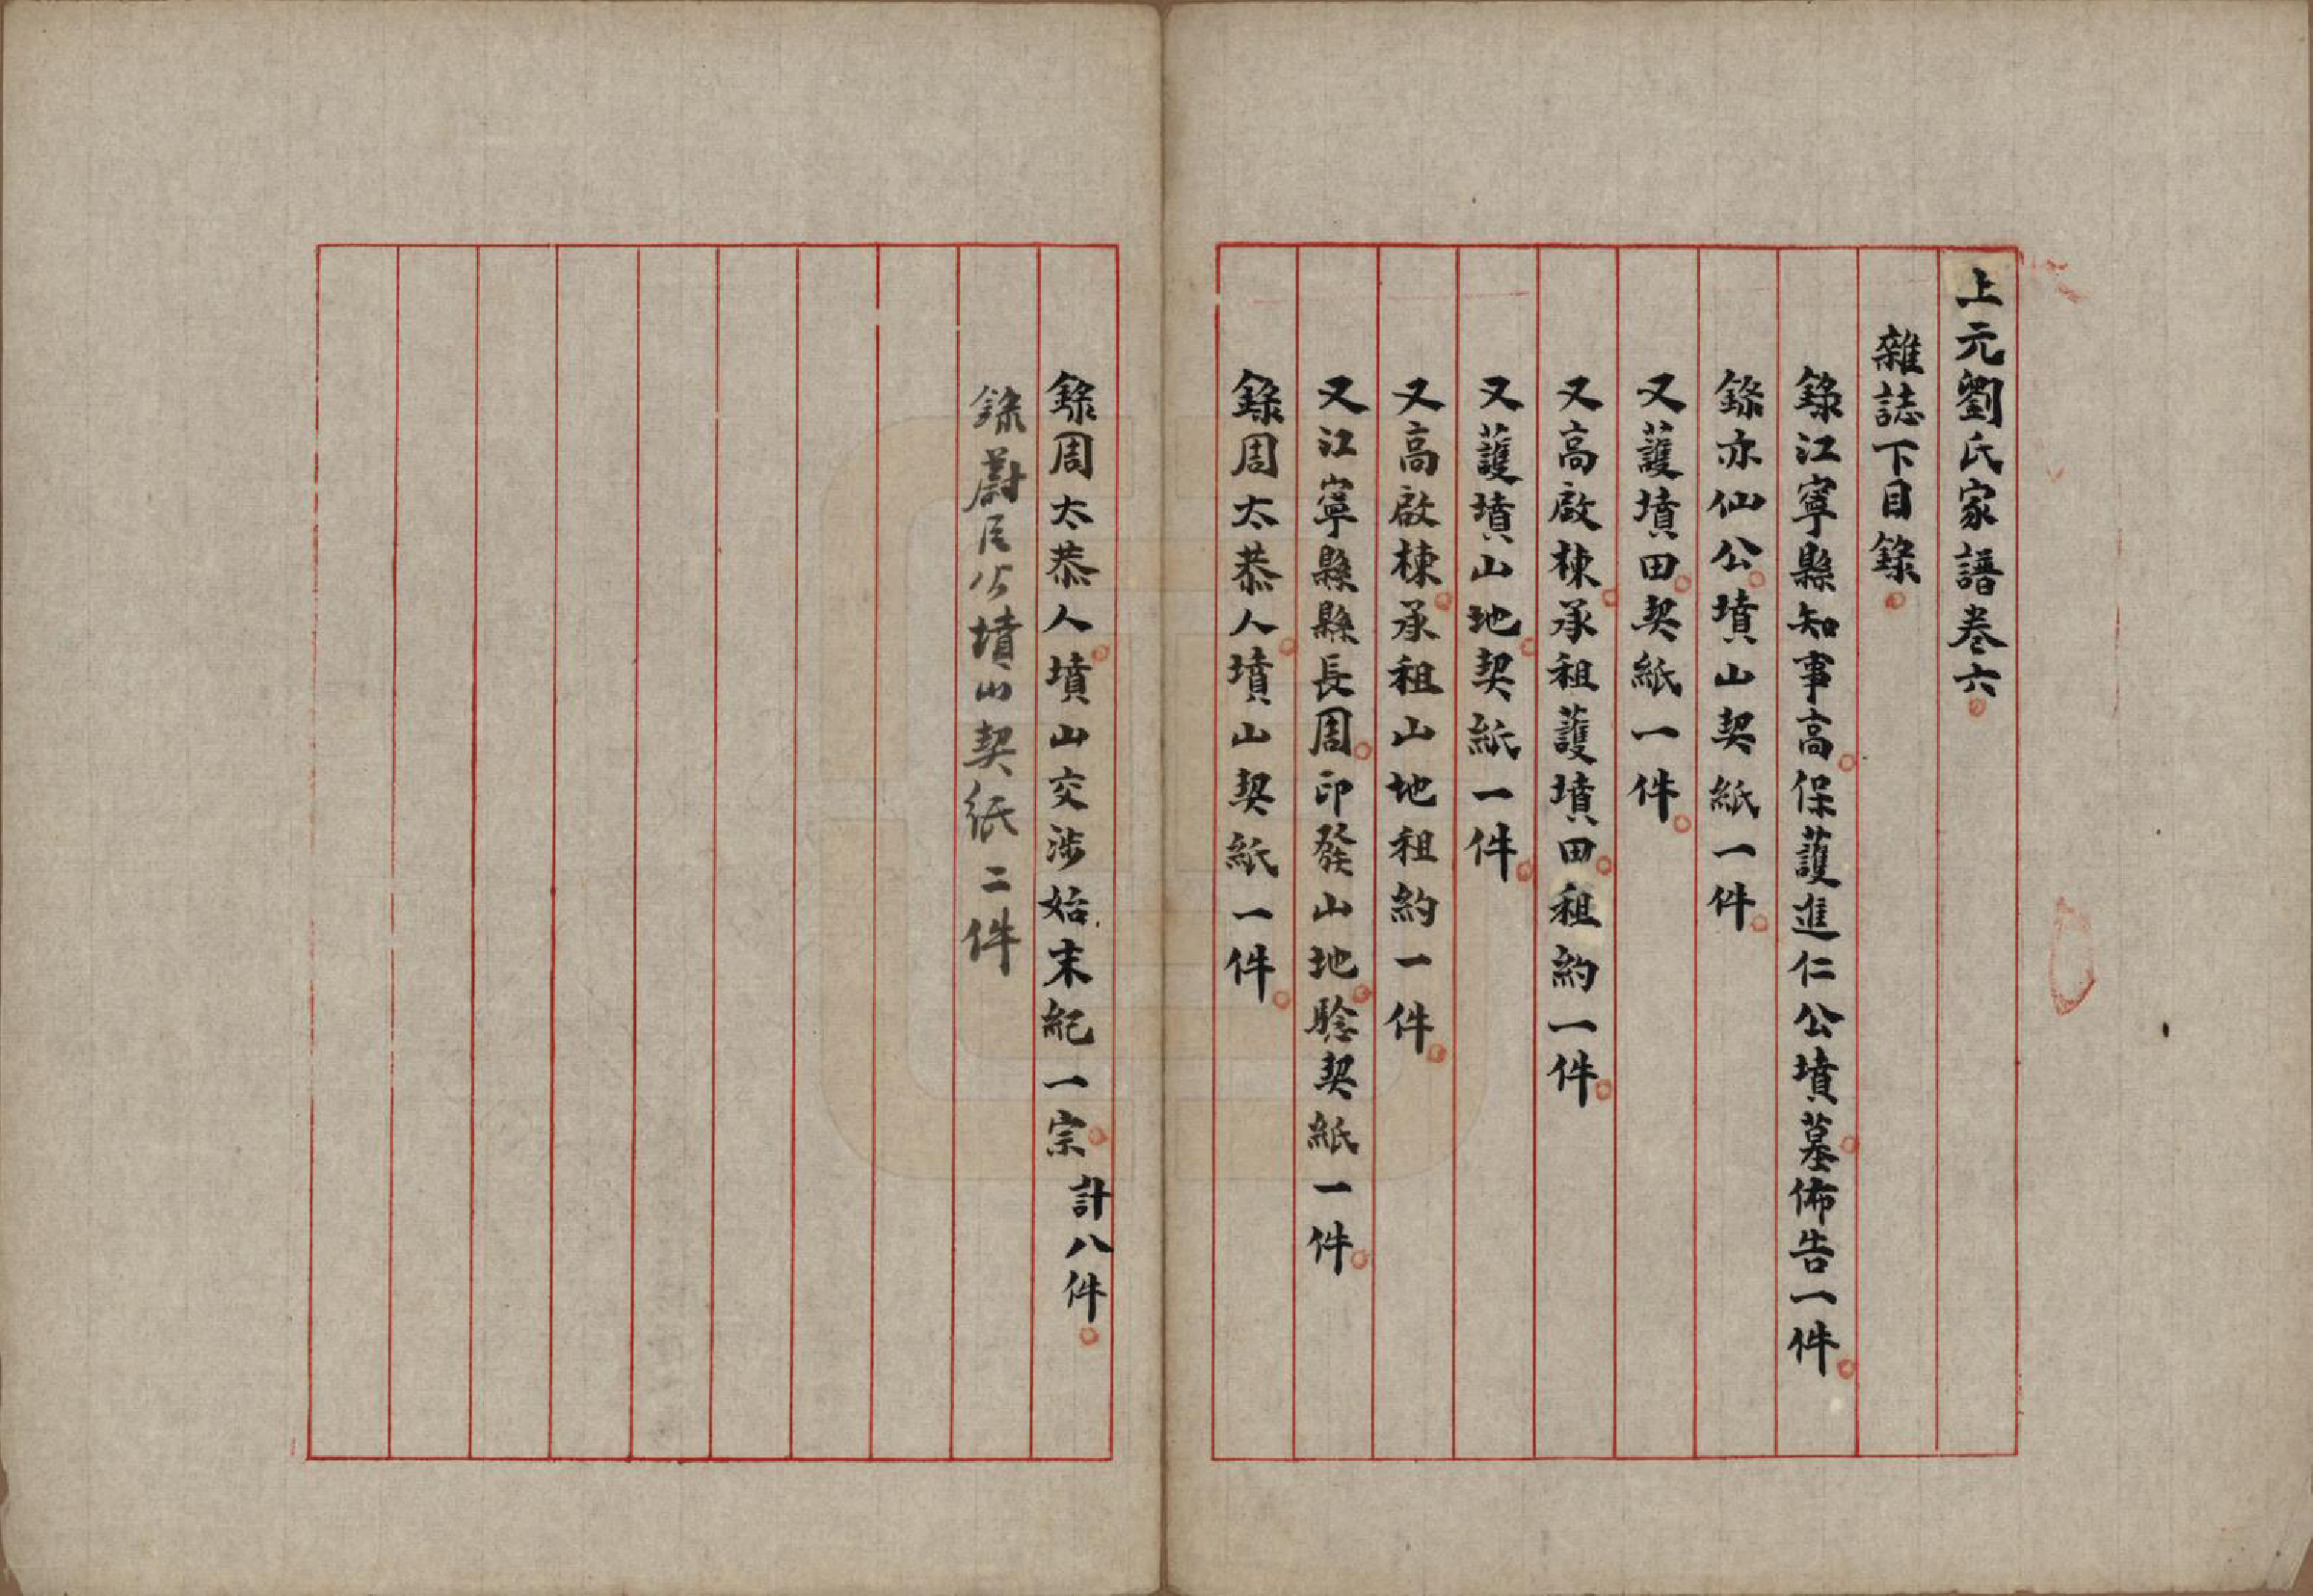 上元劉氏家譜卷六
雜誌下目錄
錄江寧縣知事高保護進仁公墳墓佈告一件
錄亦仙公墳山契紙一件
又護墳田契紙一件
又高啟棟承租護墳田租約一件
又護墳山地契紙一件
又高啟棟承租山地租約一件
又江寧縣縣長周印發山地驗契紙一件
錄周太恭人墳山契紙一件
錄周太恭人墳山交涉始末紀一宗 計八件
錄蔚臣公墳山契紙二件